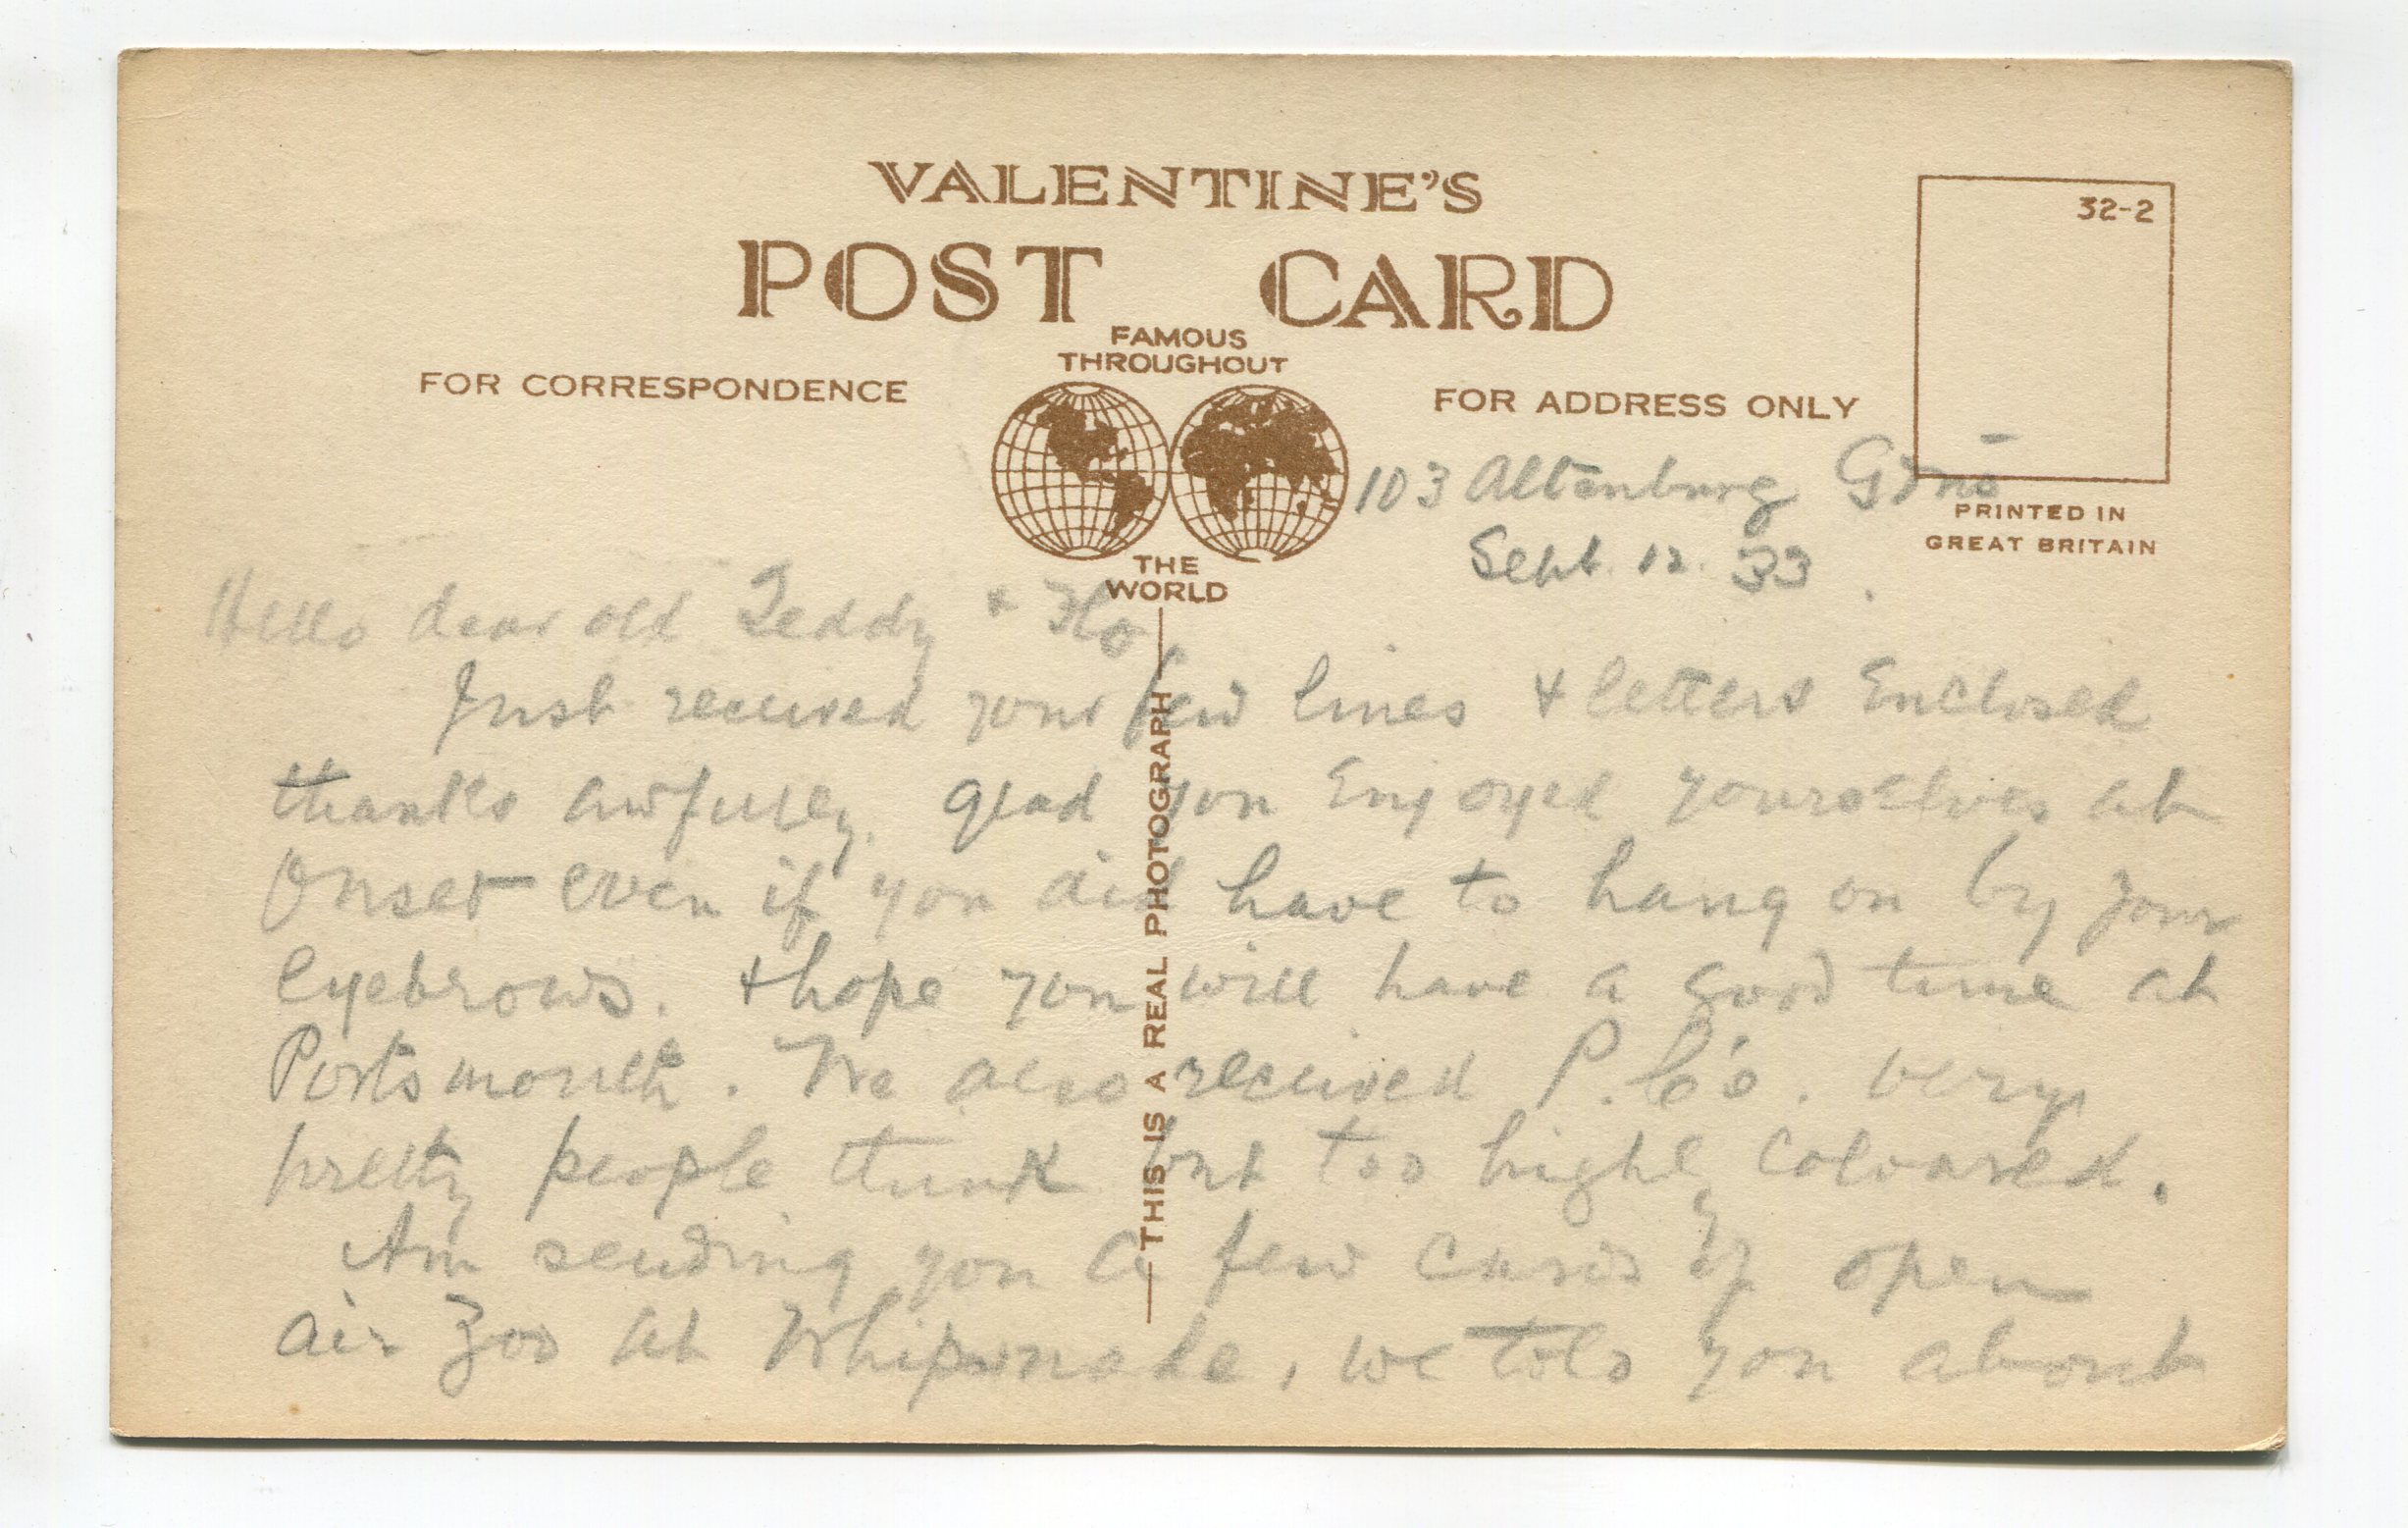 VALENTINE'S
POST CARD
FAMOUS
THROUGHOUT
THE
WORLD
FOR CORRESPONDENCE
FOR ADDRESS ONLY
32-2
PRINTED IN
GREAT BRITAIN
THIS IS A REAL PHOTOGRAPH
103 Altenburg Gdns
Sept. 12. 33.
Hello dear old Teddy & Flo
Just received your few lines & letters Enclosed
thanks awfully. glad you Enjoyed yourselves at
Onset even if you did have to hang on by your
Eyebrows. & hope you will have a good time at
Portsmouth. We also received P.C's. very
pretty people think but too highly coloured.
Am sending you a few cards of open
air Zoo at Whipsnade, we told you about